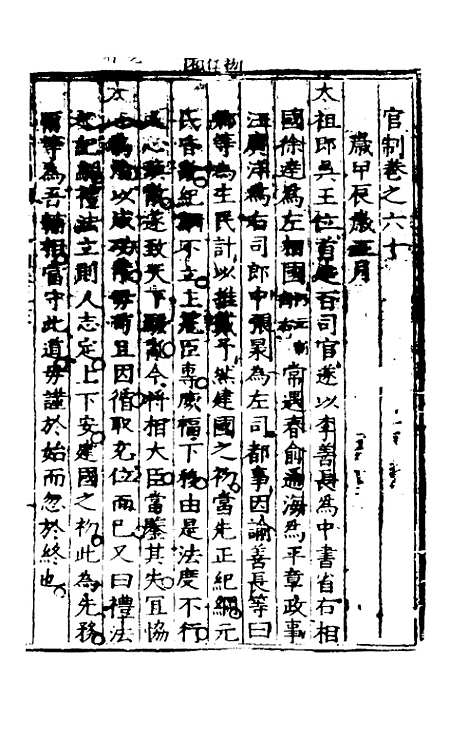 官制卷之六十
歲甲辰歲正月
太祖即吳王位首建百司官遂以李善長為中書省右相
國徐達為左相國常遇春俞通海為平章政事
汪廣洋為右司郎中張㫤為左司都事因諭善長等曰
卿等為生民計以推戴予然建國之初當先正紀綱元
氏昏亂紀綱不立主荒臣專威福下移由是法度不行
人心渙散遂致天下騷亂今將相大臣當鑒其失宜協
心為治以成功業毋苟且因循取充位而已又曰禮法
紀綱禮法立則人志定上下安建國之初此為先務
爾等為吾輔相當守此道毋謹於始而忽於終也